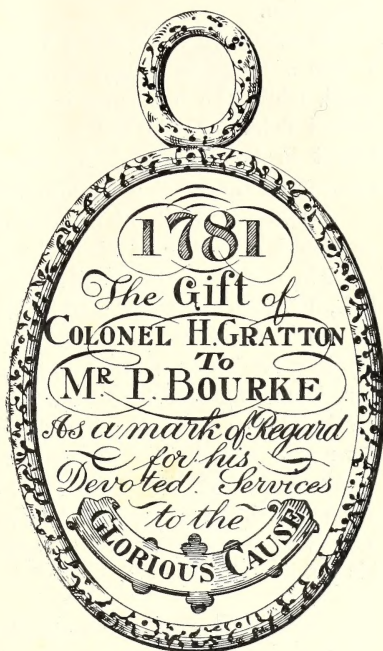 1781
The Gift of
COLONEL H. GRATTON
To
MR P. BOURKE
As a mark of Regard
for his
Devoted. Services
to the
GLORIOUS CAUSE